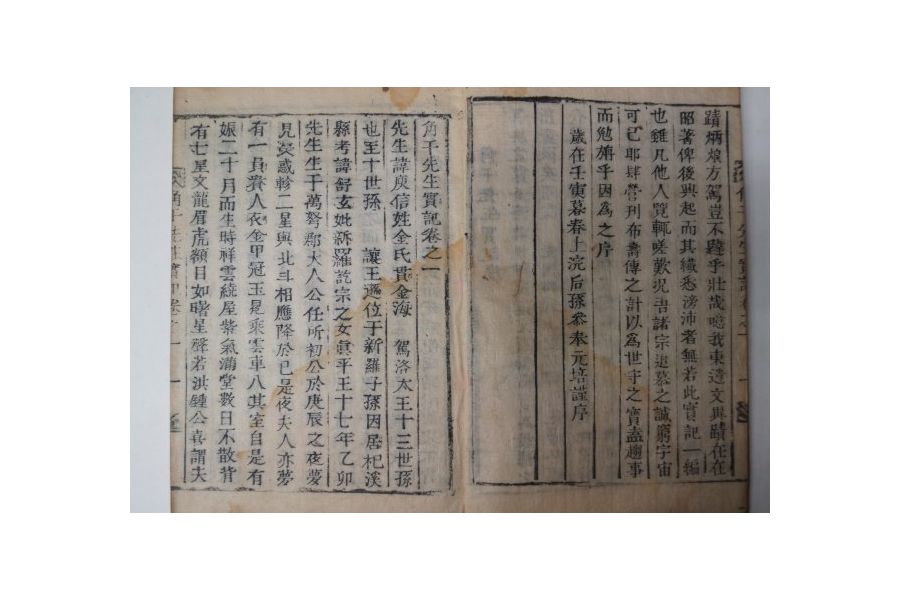 蹟炳烺方駕豈不韙乎壯哉噫我東遺文異蹟在在
昭著俾後興起而其纖悉滂沛者無若此實記一編
也雖凡他人覽輒嗟歎况吾諸宗追慕之誠窮宇宙
可已耶肆營刊布壽傳之計以爲世守之寶盍趨事
而勉旃乎因爲之序
歲在壬寅暮春上浣后孫參奉元培謹序
角干先生實記卷之一
先生諱庾信姓金氏貫金海 駕洛太王十三世孫
也至十世孫 讓王遜位于新羅子孫因居杞溪
縣考諱舒玄妣新羅訖宗之女眞平王十七年乙卯
先生生于萬弩郡大人公任所初公於庚辰之夜夢
見熒惑鎭二星與北斗相應降於己是夜夫人亦夢
有一員賽人衣金甲冠玉冕乘雲車入其室自是有
娠二十月而生時祥雲繞屋紫氣滿堂數日不散背
有七星文龍眉虎額目如曙星聲若洪鍾公喜謂夫
角干先生實記卷之一 一